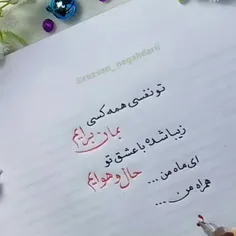 @rezvan_negahdarii
تو نفسی همه کسی
بمان برایم
زیبا شده با عشق تو
حال و هوایم
ای ماه من ...
همراه من ...